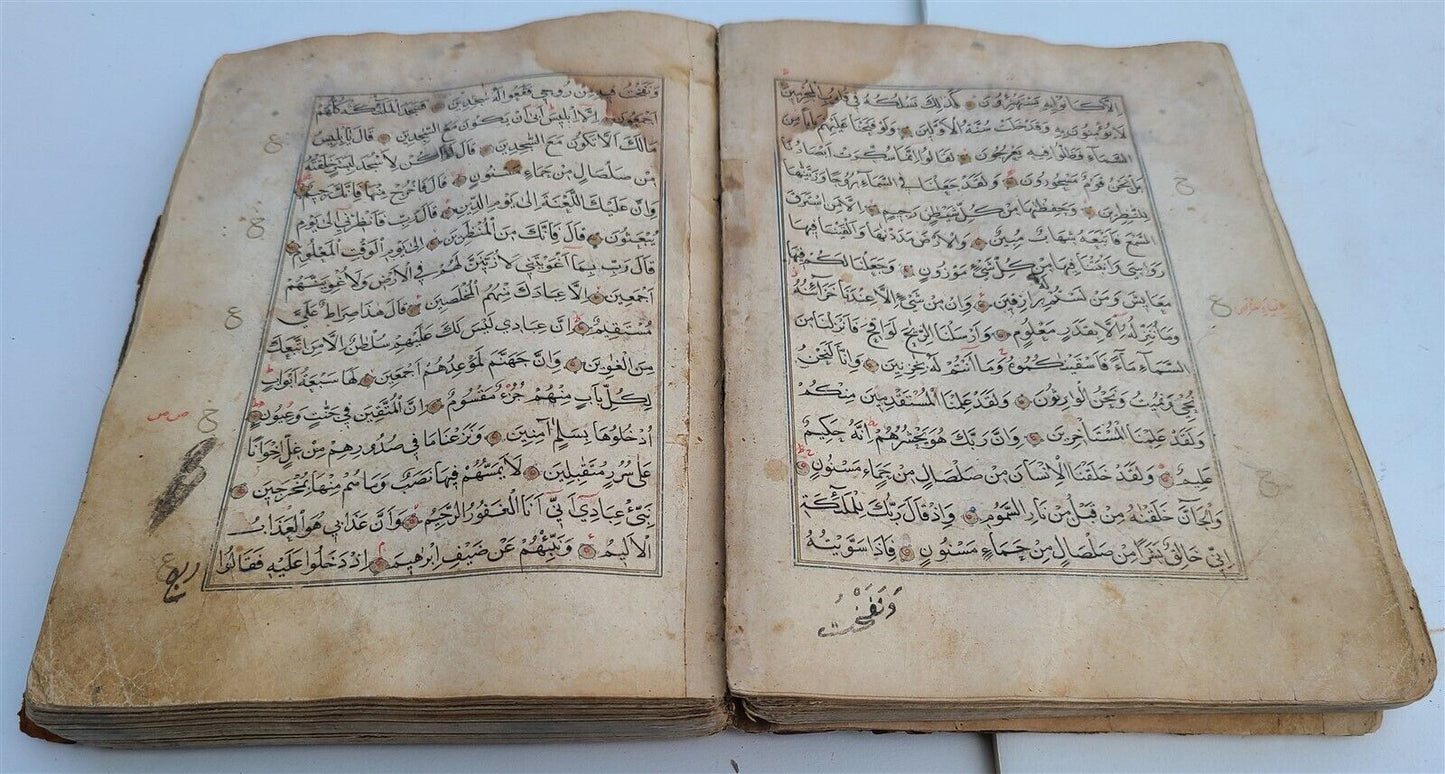 اِلَّا كَانُوا بِهِ يَسْتَهْزِؤُنَ كَذٰلِكَ نَسْلُكُهُ فِي قُلُوبِ الْمُجْرِمِينَ
لَا يُؤْمِنُونَ بِهِ وَقَدْ خَلَتْ سُنَّةُ الْاَوَّلِينَ وَلَوْ فَتَحْنَا عَلَيْهِمْ بَابًا مِنَ
السَّمَآءِ فَظَلُّوا فِيهِ يَعْرُجُونَ لَقَالُوا اِنَّمَا سُكِّرَتْ اَبْصَارُنَا
بَلْ نَحْنُ قَوْمٌ مَسْحُورُونَ وَلَقَدْ جَعَلْنَا فِي السَّمَآءِ بُرُوجًا وَزَيَّنَّاهَا
لِلنَّاظِرِينَ وَحَفِظْنَاهَا مِنْ كُلِّ شَيْطَانٍ رَجِيمٍ اِلَّا مَنِ اسْتَرَقَ
السَّمْعَ فَاَتْبَعَهُ شِهَابٌ مُبِينٌ وَالْاَرْضَ مَدَدْنَاهَا وَاَلْقَيْنَا فِيهَا
رَوَاسِيَ وَاَنْبَتْنَا فِيهَا مِنْ كُلِّ شَيْءٍ مَوْزُونٍ وَجَعَلْنَا لَكُمْ فِيهَا
مَعَايِشَ وَمَنْ لَسْتُمْ لَهُ بِرَازِقِينَ وَاِنْ مِنْ شَيْءٍ اِلَّا عِنْدَنَا خَزَآئِنُهُ
وَمَا نُنَزِّلُهُ اِلَّا بِقَدَرٍ مَعْلُومٍ وَاَرْسَلْنَا الرِّيَاحَ لَوَاقِحَ فَاَنْزَلْنَا مِنَ
السَّمَآءِ مَآءً فَاَسْقَيْنَاكُمُوهُ وَمَآ اَنْتُمْ لَهُ بِخَازِنِينَ وَاِنَّا لَنَحْنُ
نُحْيِي وَنُمِيتُ وَنَحْنُ الْوَارِثُونَ وَلَقَدْ عَلِمْنَا الْمُسْتَقْدِمِينَ مِنْكُمْ
وَلَقَدْ عَلِمْنَا الْمُسْتَأْخِرِينَ وَاِنَّ رَبَّكَ هُوَ يَحْشُرُهُمْ اِنَّهُ حَكِيمٌ
عَلِيمٌ وَلَقَدْ خَلَقْنَا الْاِنْسَانَ مِنْ صَلْصَالٍ مِنْ حَمَاءٍ مَسْنُونٍ
وَالْجَآنَّ خَلَقْنَاهُ مِنْ قَبْلُ مِنْ نَارِ السَّمُومِ وَاِذْ قَالَ رَبُّكَ لِلْمَلٰٓئِكَةِ
اِنِّي خَالِقٌ بَشَرًا مِنْ صَلْصَالٍ مِنْ حَمَاءٍ مَسْنُونٍ فَاِذَا سَوَّيْتُهُ
وَنَفَخْتُ
وَنَفَخْتُ فِيهِ مِنْ رُوحِي فَقَعُوا لَهُ سَاجِدِينَ فَسَجَدَ الْمَلٰٓئِكَةُ كُلُّهُمْ
اَجْمَعُونَ اِلَّآ اِبْلِيسَ اَبٰى اَنْ يَكُونَ مَعَ السَّاجِدِينَ قَالَ يَا اِبْلِيسُ
مَالَكَ اَلَّا تَكُونَ مَعَ السَّاجِدِينَ قَالَ لَمْ اَكُنْ لِاَسْجُدَ لِبَشَرٍ خَلَقْتَهُ
مِنْ صَلْصَالٍ مِنْ حَمَاءٍ مَسْنُونٍ قَالَ فَاخْرُجْ مِنْهَا فَاِنَّكَ رَجِيمٌ
وَاِنَّ عَلَيْكَ اللَّعْنَةَ اِلٰى يَوْمِ الدِّينِ قَالَ رَبِّ فَاَنْظِرْنِي اِلٰى يَوْمِ
يُبْعَثُونَ قَالَ فَاِنَّكَ مِنَ الْمُنْظَرِينَ اِلٰى يَوْمِ الْوَقْتِ الْمَعْلُومِ
قَالَ رَبِّ بِمَآ اَغْوَيْتَنِي لَاُزَيِّنَنَّ لَهُمْ فِي الْاَرْضِ وَلَاُغْوِيَنَّهُمْ
اَجْمَعِينَ اِلَّا عِبَادَكَ مِنْهُمُ الْمُخْلَصِينَ قَالَ هٰذَا صِرَاطٌ عَلَيَّ
مُسْتَقِيمٌ اِنَّ عِبَادِي لَيْسَ لَكَ عَلَيْهِمْ سُلْطَانٌ اِلَّا مَنِ اتَّبَعَكَ
مِنَ الْغَاوِينَ وَاِنَّ جَهَنَّمَ لَمَوْعِدُهُمْ اَجْمَعِينَ لَهَا سَبْعَةُ اَبْوَابٍ
لِكُلِّ بَابٍ مِنْهُمْ جُزْءٌ مَقْسُومٌ اِنَّ الْمُتَّقِينَ فِي جَنَّاتٍ وَعُيُونٍ
اُدْخُلُوهَا بِسَلَامٍ اٰمِنِينَ وَنَزَعْنَا مَا فِي صُدُورِهِمْ مِنْ غِلٍّ اِخْوَانًا
عَلٰى سُرُرٍ مُتَقَابِلِينَ لَا يَمَسُّهُمْ فِيهَا نَصَبٌ وَمَا هُمْ مِنْهَا بِمُخْرَجِينَ
نَبِّئْ عِبَادِي اَنِّي اَنَا الْغَفُورُ الرَّحِيمُ وَاَنَّ عَذَابِي هُوَ الْعَذَابُ
الْاَلِيمُ وَنَبِّئْهُمْ عَنْ ضَيْفِ اِبْرٰهِيمَ اِذْ دَخَلُوا عَلَيْهِ فَقَالُوا